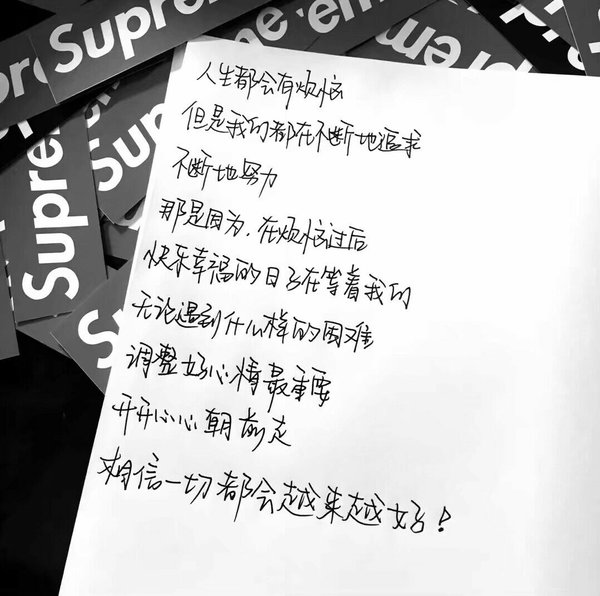 Supreme
Supreme
Supreme
人生都会有烦恼
但是我们都在不断地追求
不断地努力
那是因为,在烦恼过后
快乐幸福的日子在等着我们
无论遇到什么样的困难
调整好心情最重要
开开心心朝前走
相信一切都会越来越好!